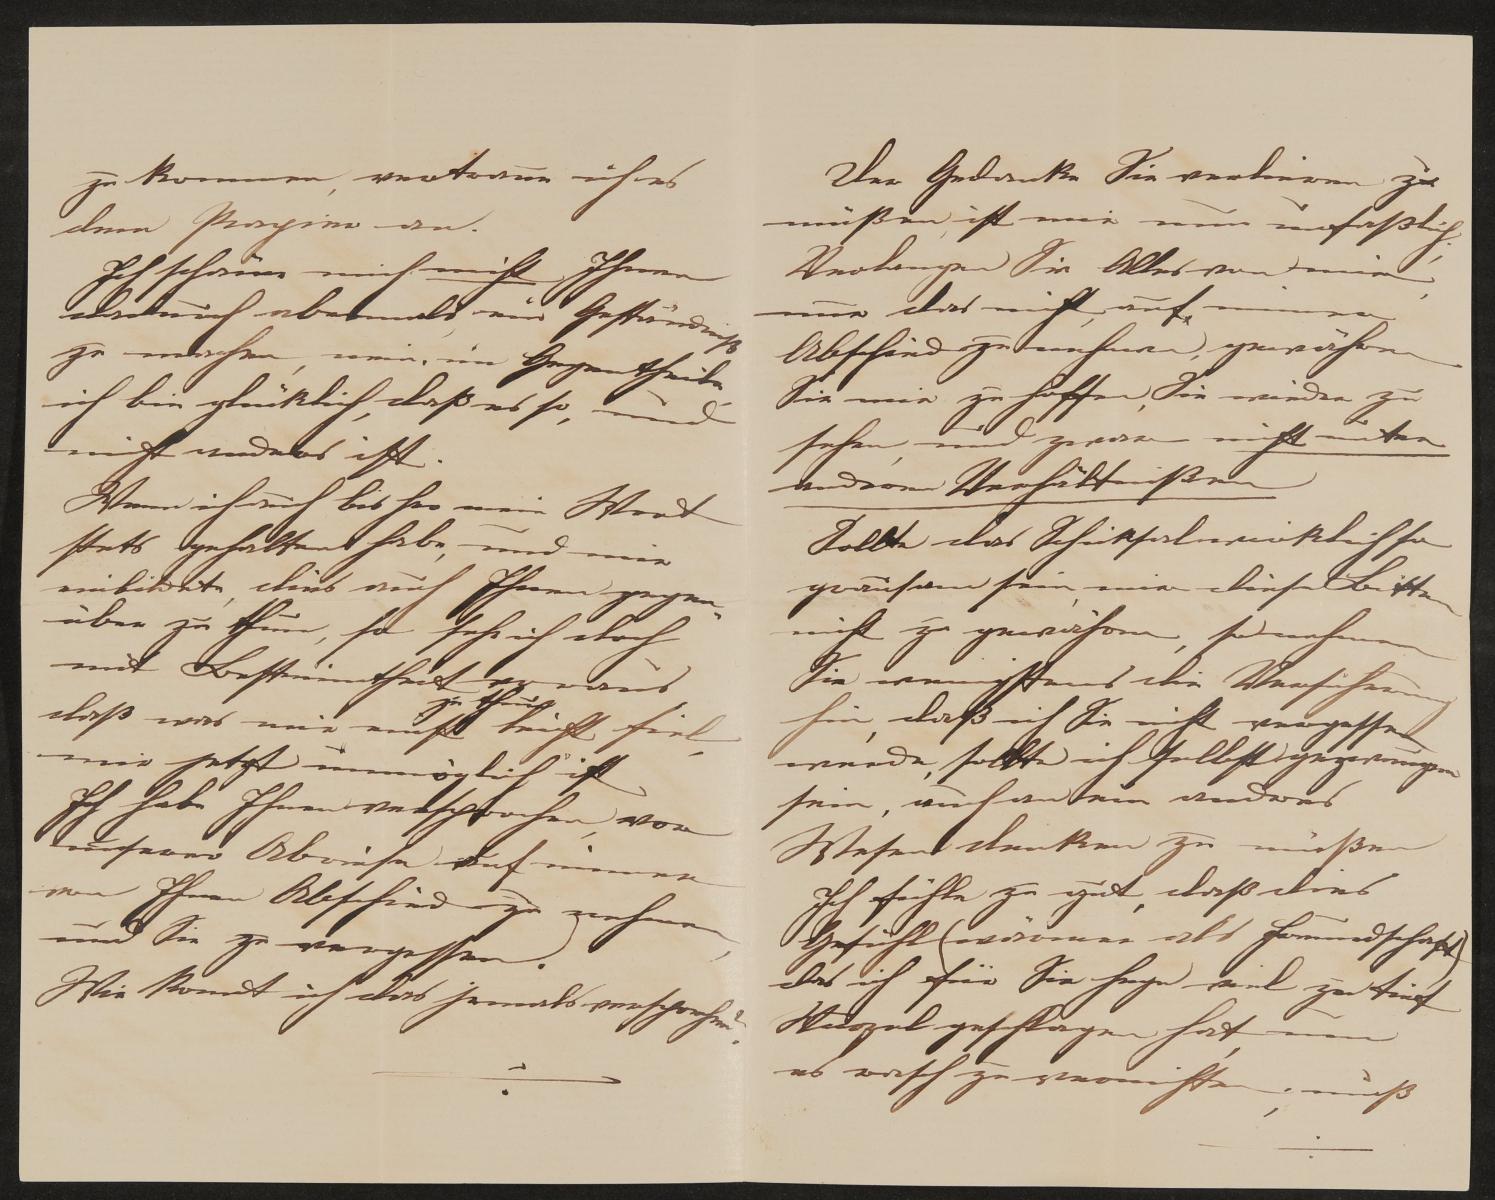 zu kommen, vertraue ich es
dem Papier an.
Ich schäme mich nicht Ihnen
dadurch abermals ein Geständniß
zu machen, nein, im Gegentheile
ich bin glücklich, daß es so, und
nicht anders ist.
Wenn ich auch bis her mein Wort
stets gehalten habe, und mir
einbildete, dies auch Ihnen gegen-
über zu thun, so sehe ich doch
mit Bestimmtheit voraus
daß was mir einst zu thun leicht fiel,
mir jetzt unmöglich ist
Ich habe Ihnen versprochen, vor
unserer Abreise auf immer
von Ihnen Abschied zu nehmen,
und Sie zu vergessen.
Wie konnt ich das jemals versprechen?
Der Gedanke Sie verlieren zu
müßen, ist mir nun unfaßlich,
Verlangen Sie Alles von mir,
nur das nicht, auf immer
Abschied zu nehmen, gewähren
Sie mir zu hoffen, Sie wieder zu
sehen, und zwar nicht unter
anderen Verhältnißen
Sollte das Schiksal wirklich so
grausam sein, mir diese Bitten
nicht zu gewähren, so nehmen
Sie wenigstens die Versicherung
hin, daß ich Sie nicht vergessen
werde, sollte ich selbst gezwungen
sein, auch an ein anderes
Wesen denken zu müßen
Ich fühle zu gut, daß dies
Gefühl (wärmer als Freundschaft)
das ich für Sie hege viel zu tief
Wurzel geschlagen hat, um
es rasch zu vernichten; muß